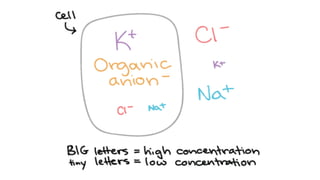 Cell
K+
Cl-
Organic
anion-
K+
Na+
Cl-
Na+
BIG letters = high concentration
tiny letters = low concentration